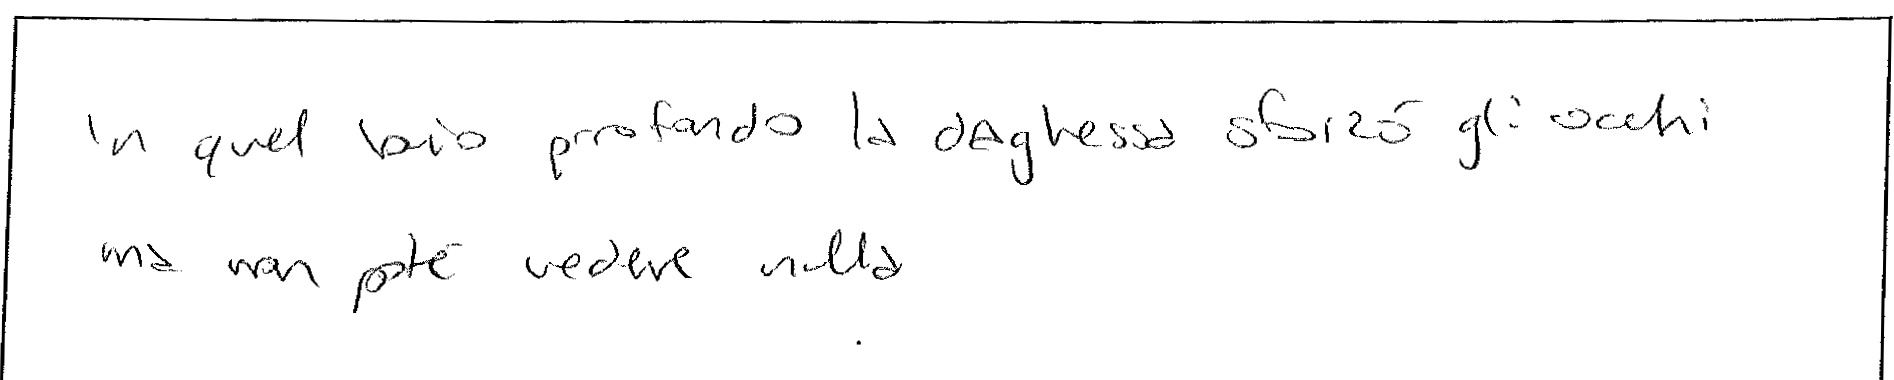 In quel buio profondo la daghessa sforzò gli occhi
ma non poté vedere nulla